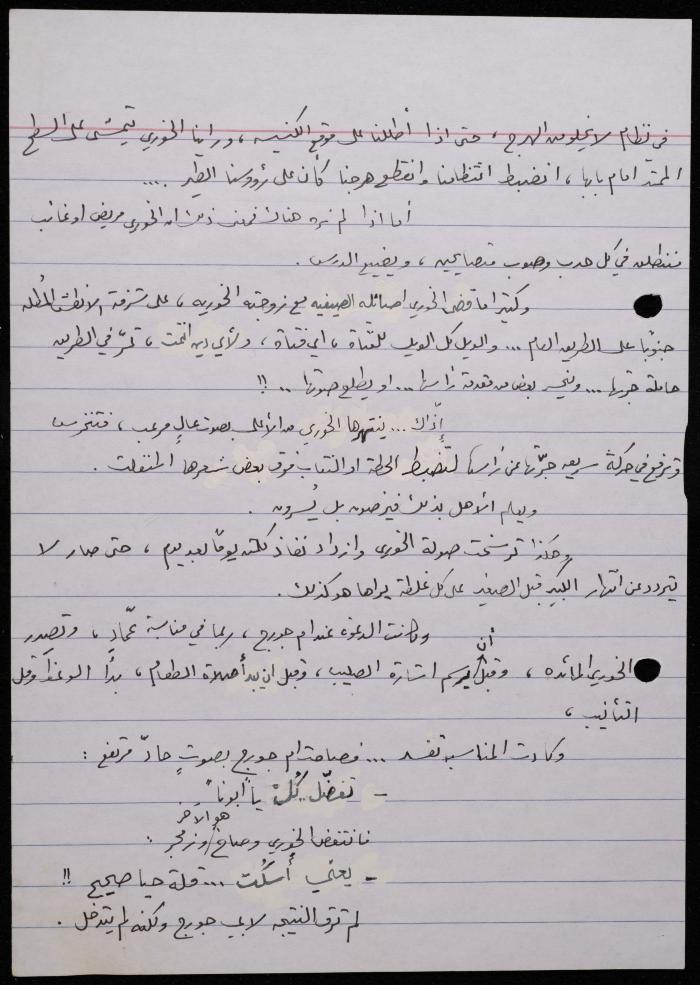 في نظام لا يخلو من الهرج ، حتى اذا أطللنا على موقع الكنيسه ، وراينا الخوري يتمشى على السطح
الممتد امام بابها ، انضبط انتظامنا وانقطع هرجنا كأن على رؤوسنا الطير ....
أما اذا لم نره هناك فمعنى ذلك ان الخوري مريض او غائب
فننطلق في كل حدب وصوب متصايحين ، ويضيع الدرس .
وكثيرا ما قضى الخوري اصائله الصيفيه مع زوجته الخوريه ، على شرفة المطله
جنوبًا على الطريق العام ... والويل كل الويل للفتاة ، اي فتاة ، ولأي دين انتمت ، تمرّ في الطريق
حاملة جرتها ... وينحسر بعض من مقدمة رأسها ... او يطلع صوتها .. !!
إذّاك ... ينتهرها الخوري من الأعلى بصوت عالٍ مرعب ، فتنخرس
وترفع في حركة سريعه جرّتها عن رأسها لتضبط الحطة او النقاب فوق بعض شعرها المنفلت .
ويعلم الأهل بذلك فيرضون بل يُسرون .
وهكذا ترسخت صولة الخوري وازداد نفاذ كلمته يومًا بعد يوم ، حتى صار لا
يتردد عن انتهار الكبير قبل الصغير على كل غلطة يراها هو كذلك .
وكانت الدعوه عند ام جورج ، ربما في مناسبة عمّاد ، وتصدر
الخوري المائده ، وقبل أن يرسم اشارة الصليب ، وقبل ان يبدأ صلاة الطعام ، بدأ الوعظ وقل
التأنيب ،
وكادت المناسبه تفسد ... فصاحت ام جورج بصوتٍ حادّ مرتفع :
- تفضّل .. كُلْ يا "ابونا" .
فانتفض الخوري وصاح هو الآخر وزمجر :
- يعني أُسكُت ... قلة حيا صحيح !!
لم ترق النتيجه لابي جورج ولكنه لم يتدخل .